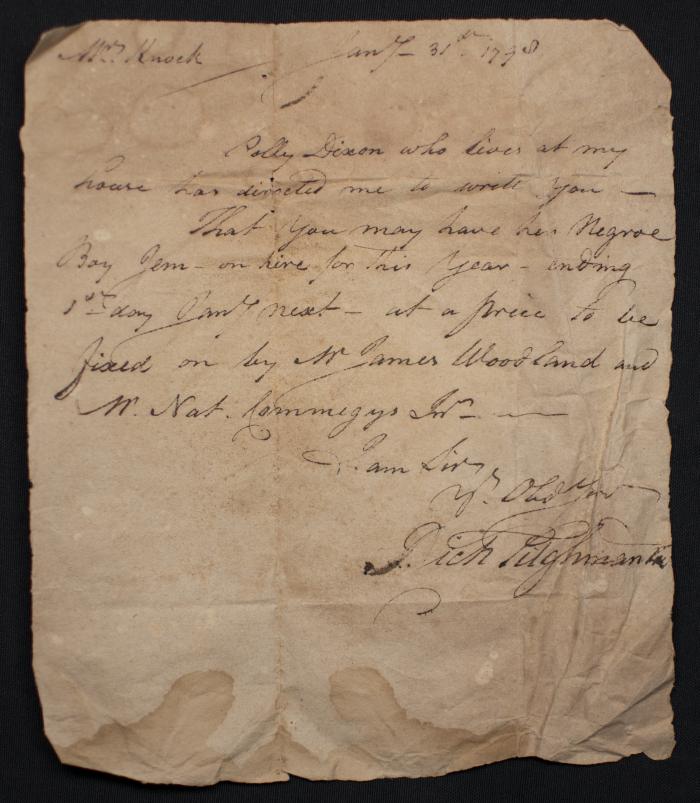 Mr. Knock Jany 31st 1798
Polly Dixon who lives at my
house has directed me to write you —
That you may have her Negroe
Boy Jem - on hire for this Year - ending
1st day Jany next - at a price to be
fixed on by Mr James Woodland and
Mr. Nat. Commegys Jnr —
I am Sir
Yr. Obd Servt
Rich Tilghman